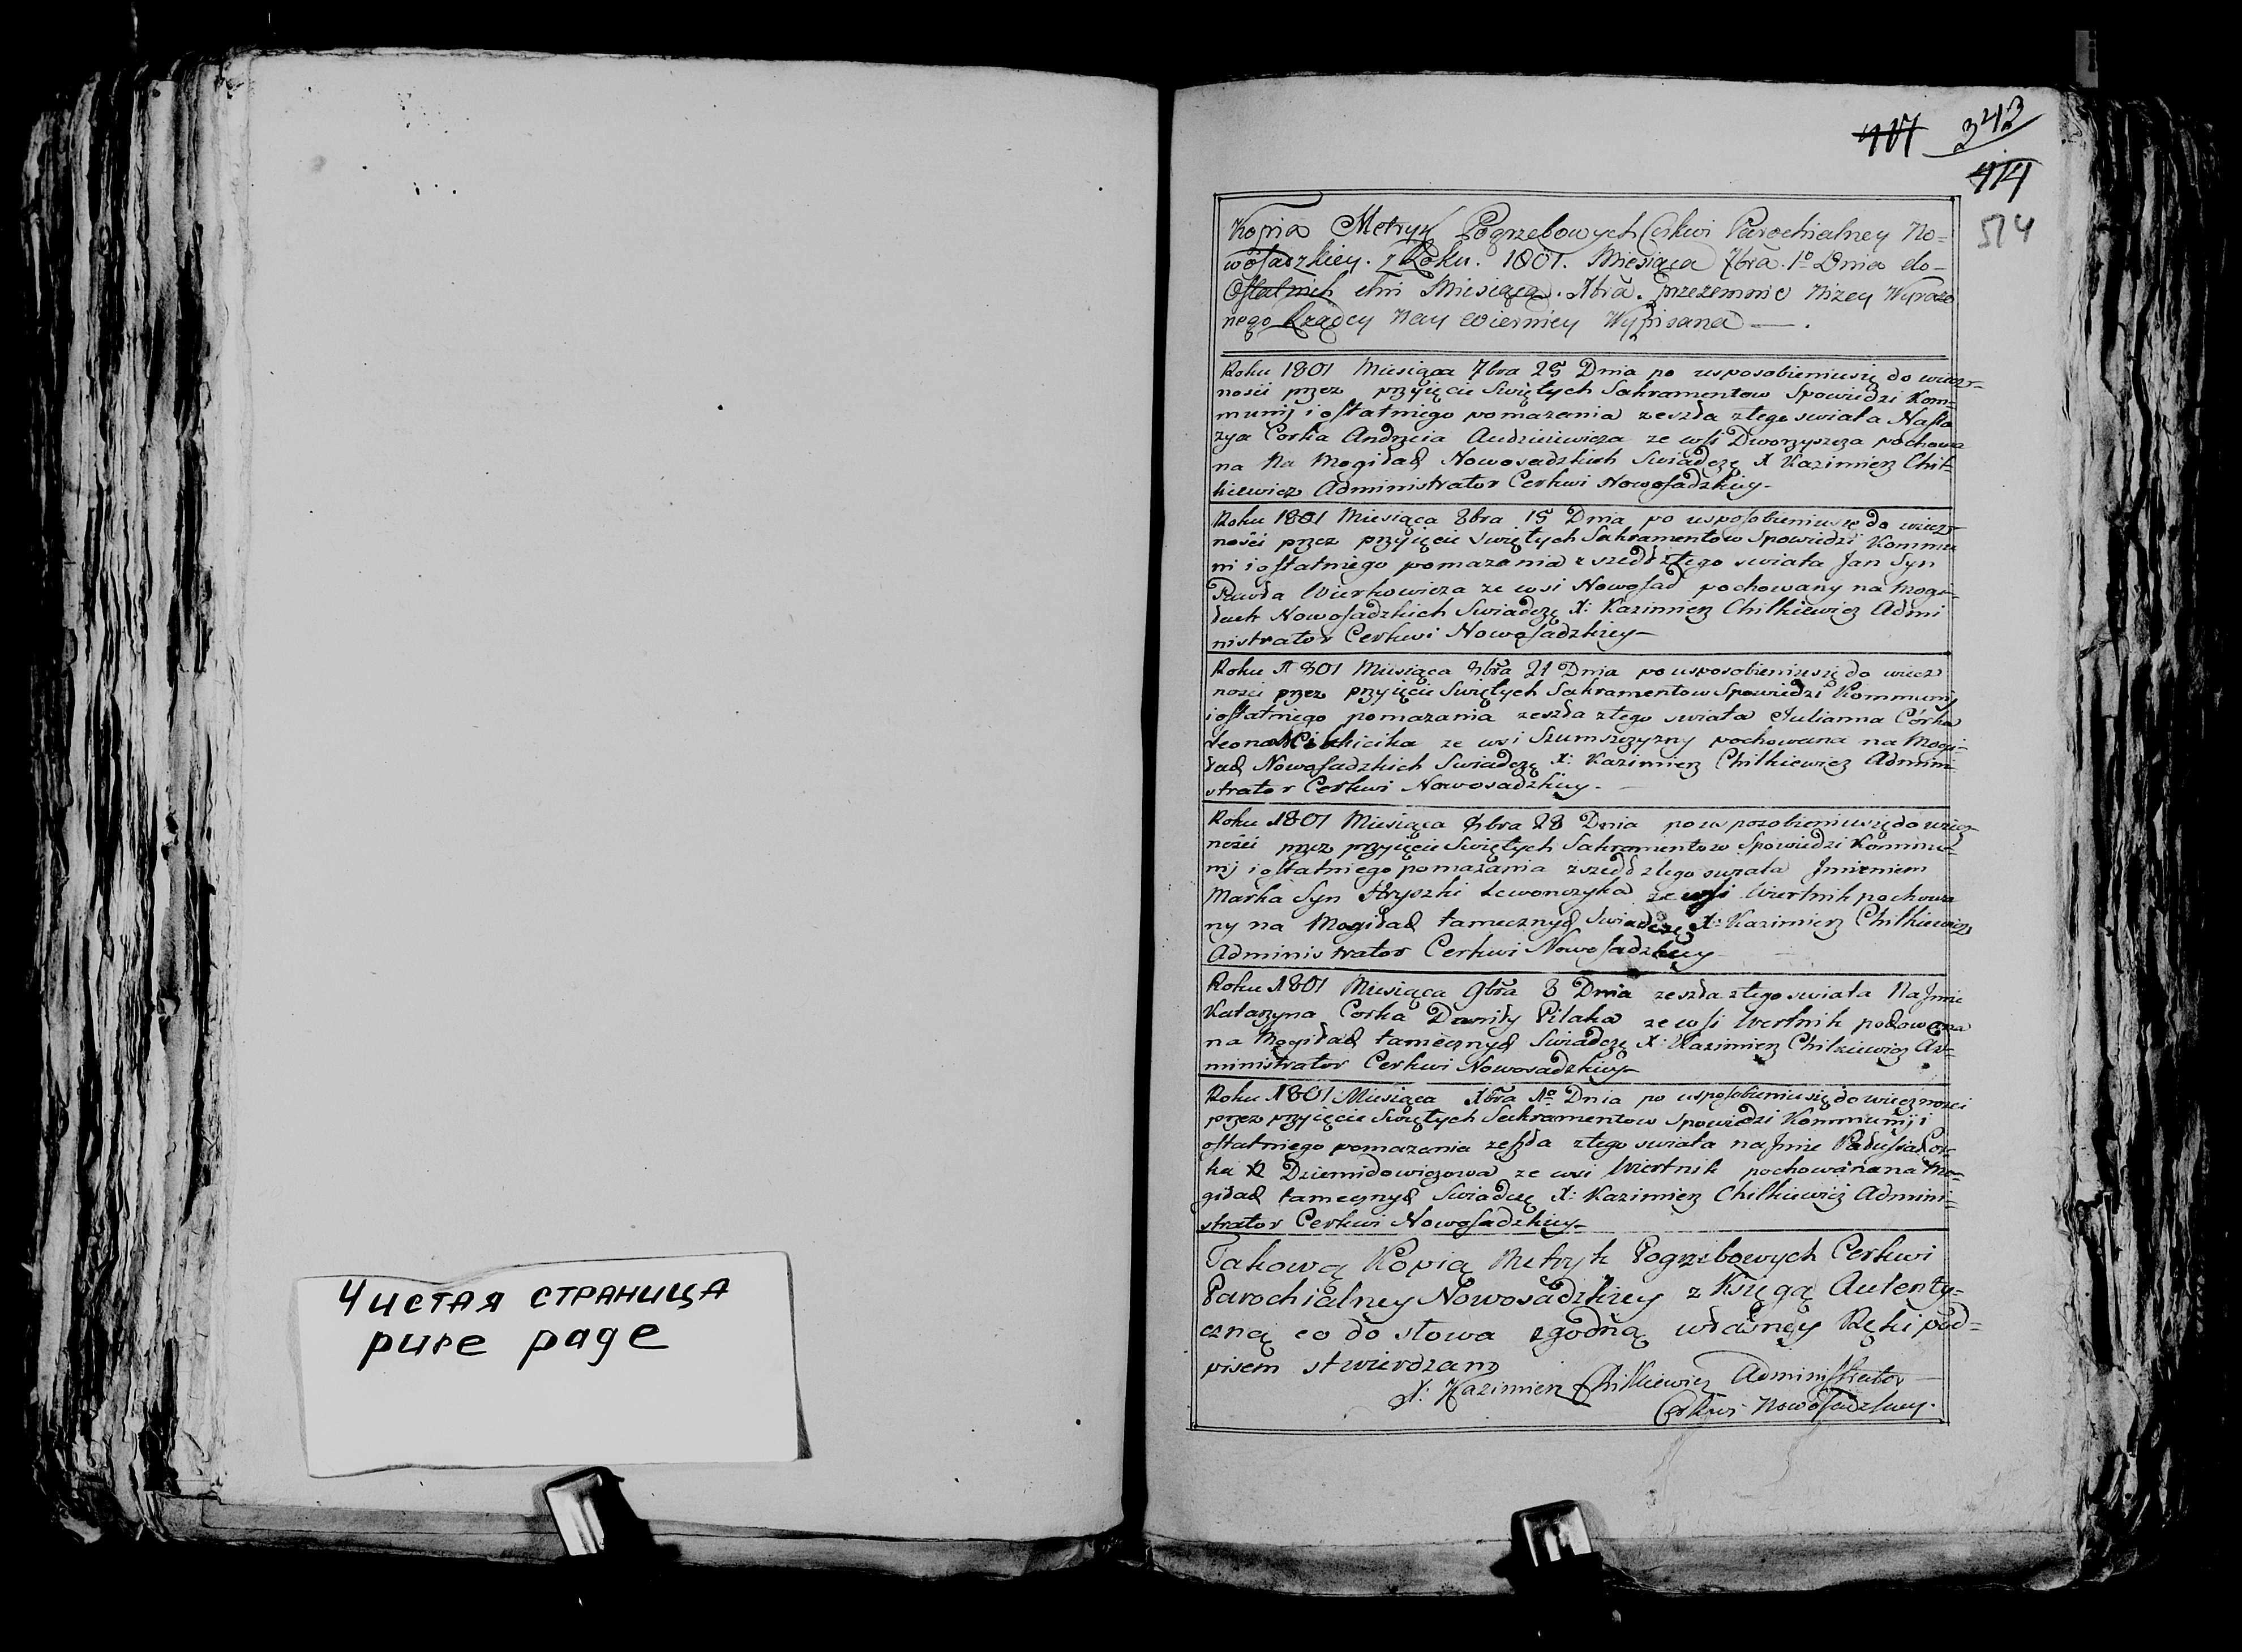 Чистая страница
pure page
417 343
414
514
Kopia Metryk Pogrzebowych Cerkwi Parochialney No=
wosadzkiey. z Roku. 1801. Miesiąca 7bra. 1º Dnia do
Ostatnich dni Miesiąca. Xbra. przezemnie Niżey Wyrażo
nego Rządcy Nay wierniey Wypisana — .
Roku 1801 Miesiąca 7bra 25 Dnia po usposobieniu się do wiecz-
ności przez przyięcie Swiętych Sakramentow Spowiedzi Kom=
munij i ostatniego pomazania zeszła z tego swiata Nasta
zya Corka Andrzeia Audzieiewicza ze wsi Dworzyszcza pochowa
na Na Mogiłach Nowosadzkich Swiadczę X Kazimierz Chil=
kiewicz Administrator Cerkwi Nowosadzkiey-
Roku 1801 Miesiąca 8bra 15 Dnia po usposobieniu się do wiecz-
ności przez przyięcie swiętych Sakramentow Spowiedzi Kommu
ni i ostatniego pomazania zszedł z tego swiata Jan Syn
Pawła Wierkowicza ze wsi Nowosad pochowany na Mogi-
łach Nowosadzkich Swiadczę X: Kazimierz Chilkiewicz Admi
nistrator Cerkwi Nowosadzkiey-
Roku 1801 Miesiąca 8bra 21 Dnia po usposobieniu się do wiecz
ności przez przyięcie Swiętych Sakramentow Spowiedzi Kommunij
i ostatniego pomazania zeszła z tego swiata Julianna Córka
ze wsi Szumszczyzny pochowana na Mogi-
łach Nowosadzkich Swiadczę X: Kazimierz Chilkiewicz Admini
strator Cerkwi Nowosadzkiey.
Roku 1801 Miesiąca 8bra 28 Dnia po usposobieniu się do wiecz
ności przez przyięcie Swiętych Sakramentow Spowiedzi Kommu-
nij i ostatniego pomazania zszedł z tego swiata Jmieniem
Marka Syn Hryszki Lewonczyka ze wsi Wiertnik pochowa
ny na Mogiłach tamecznych Swiadczę X: Kazimierz Chilkiewicz
Administrator Cerkwi Nowosadzkiey
Roku 1801 Miesiąca 9bra 8 Dnia zeszła z tego swiata Na Jmie
Katarzyna Corka Daniły Pilaka ze wsi Wertnik pochowana
na Mogiłach tamecznych Swiadczę X: Kazimierz Chilkiewicz Ad=
ministrator Cerkwi Nowosadzkiey-
Roku 1801 Miesiąca Xbra 1º Dnia po usposobieniu się do wieczności
przez przyięcie Swiętych Sakramentow Spowiedzi Kommunij i
ostatniego pomazania zeszła z tego swiata na Jmie Cor
ka Dziemidowiczowa ze wsi Wiertnik pochowana na Mo=
giłach tamecznych Swiadczę X: Kazimierz Chilkiewicz Admini=
strator Cerkwi Nowosadzkiey-
Takową Kopią Metryk Pogrzebowych Cerkwi
Parochialney Nowosadzkiey z Księgą Autenty=
czną co do słowa zgodną własney Ręki pod=
pisem stwierdzam
X: Kazimierz Chilkiewicz Administrator
Cerkwi Nowosadzkiey.